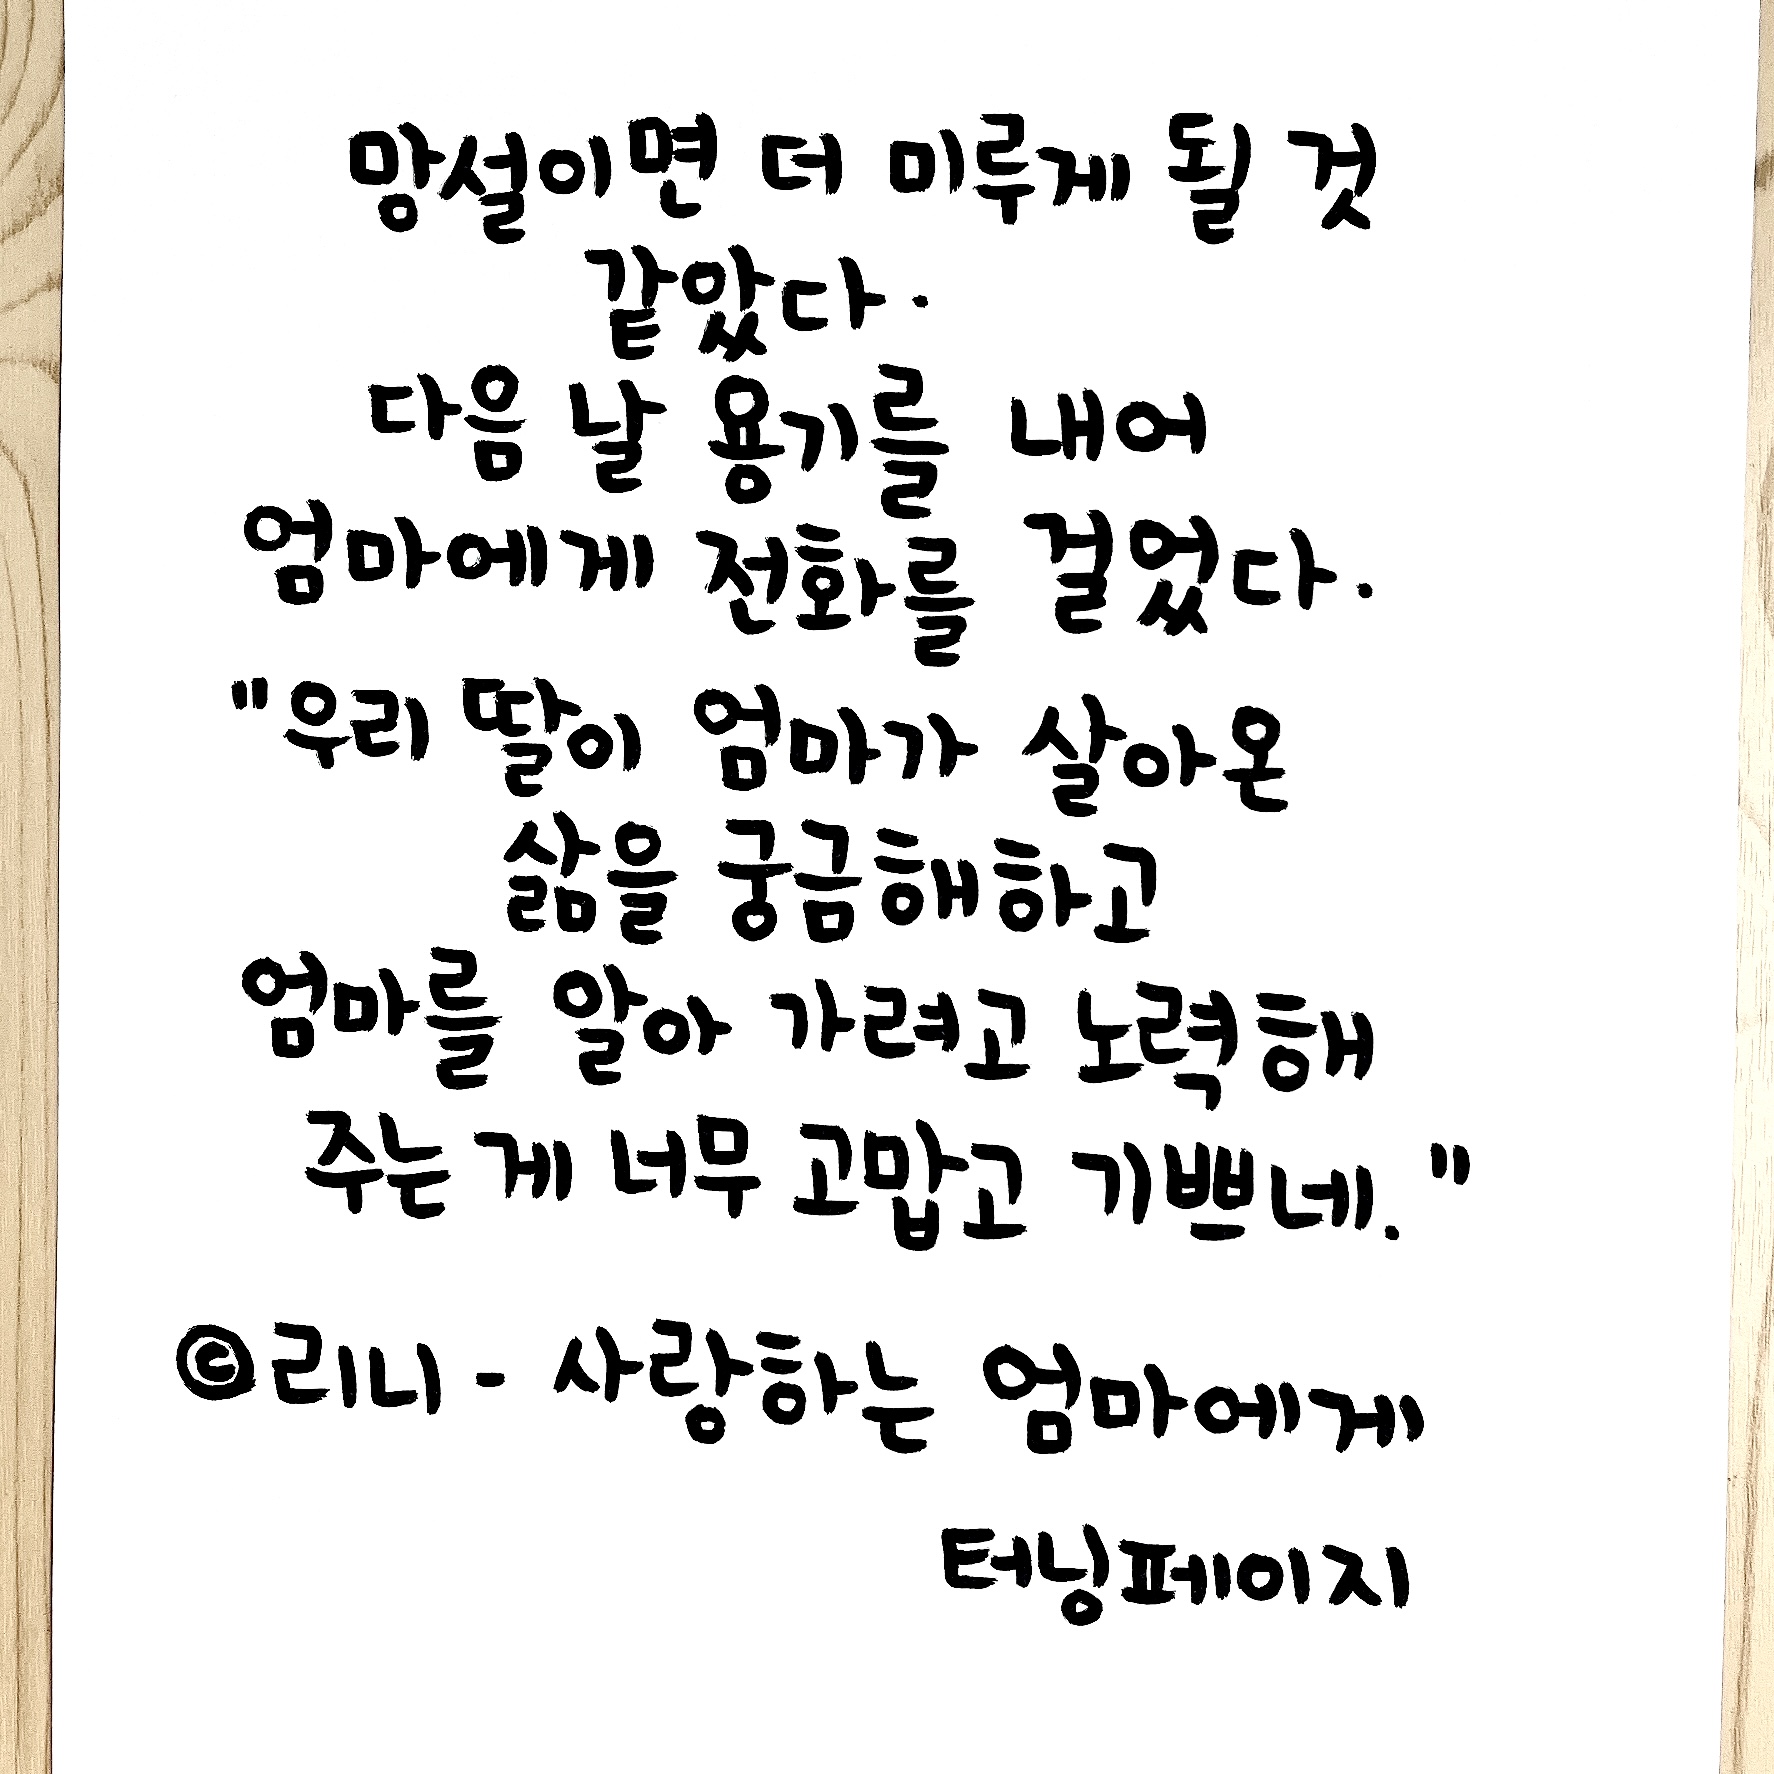 망설이면 더 미루게 될 것
같았다.
다음 날 용기를 내어
엄마에게 전화를 걸었다.
"우리 딸이 엄마가 살아온
삶을 궁금해하고
엄마를 알아 가려고 노력해
주는 게 너무 고맙고 기쁘네."
©리니 - 사랑하는 엄마에게
터닝페이지